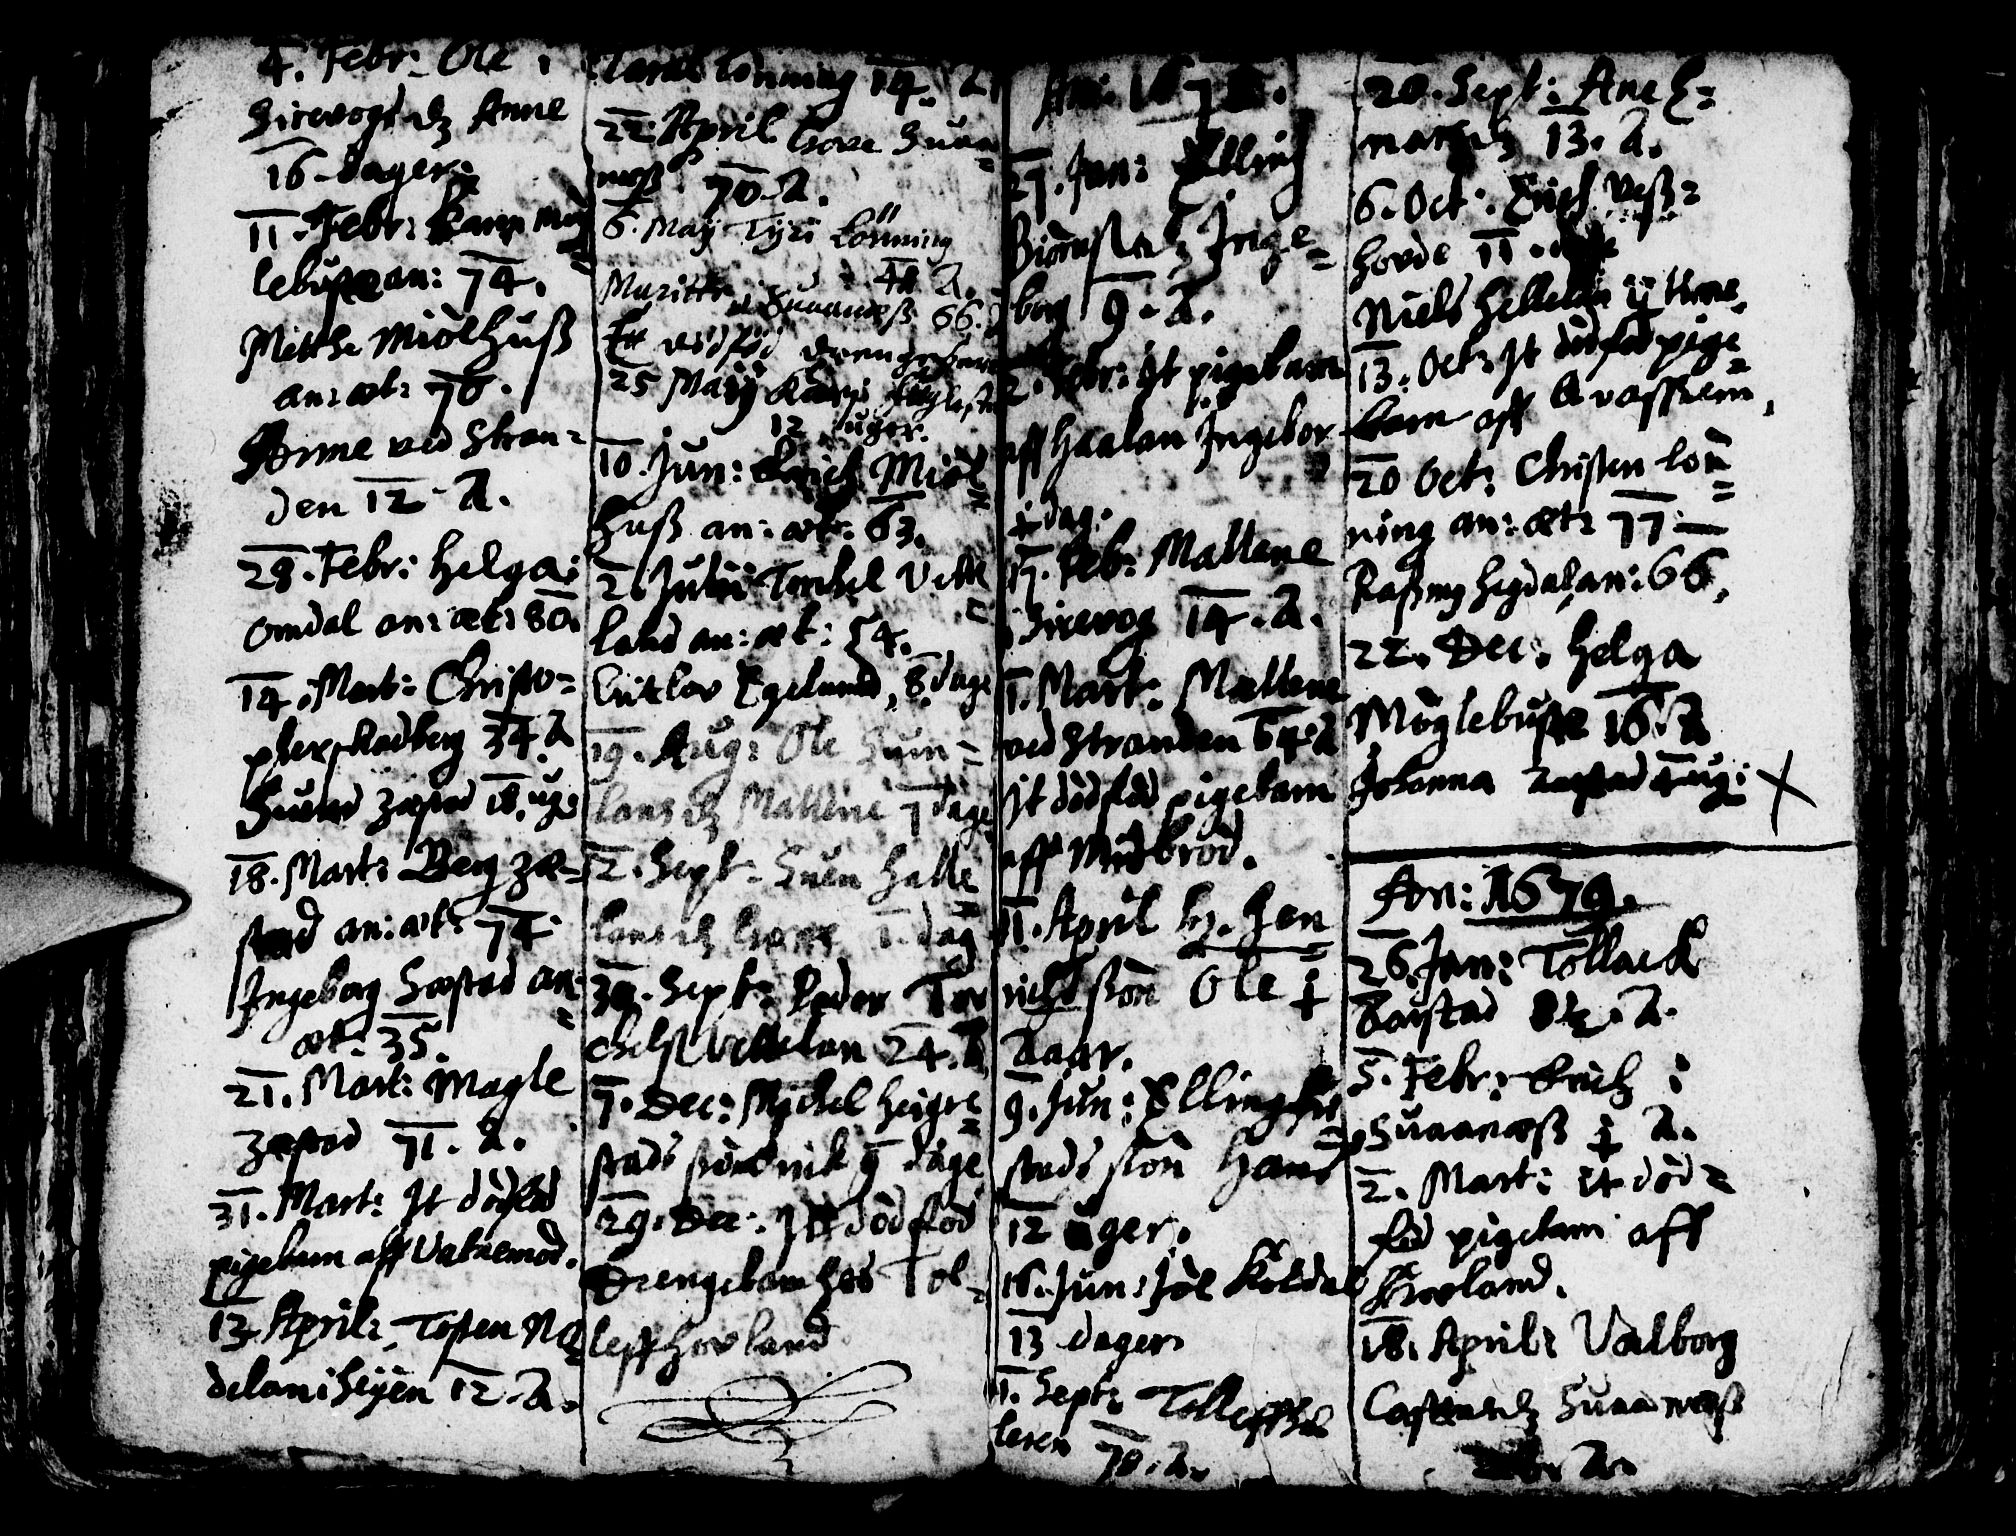 4. Febr: Ole i
Sirevogs dz Anne
16 dager.
11. Febr: Karj Møg
lebust an: 74.
Mette Miölhuß
an: æt: 76.
Anne ved Stran=
den 12 A.
28. Febr: Helga
Omdal an: æt: 80.
14. Mart: Christo=
pher skadberg 34 A
Siurd Zæstad 18. ug:
18. Mart: Berg Zæ=
stad an: æt: 74.
Ingeborg Sæstad an
æt: 35.
21. Mart: Magle
Zæstad 71. A.
31. Mart: It dödföd
pigebarn aff Vatnemod.
13 April: Tosten No
delan i Heyen 12. A.
Lönning 14. A
22. April Suaa=
næß 70. A.
6. Maÿ Tyri Lönning
48 A.
Muritte Suaanæß 66.
Et dödföd drengebarn
25 Maÿ Karj
12 uger.
10. Jun: Erich Miöl=
huß an: æt: 63.
2. Julii Torchel Vette
land an: æt: 54.
Egelund, 8 dage
19. Aug: Ole Sum=
lans dz Mallene 7 dage
12. Sept: Suen Helle
lans dz 1. dag
30. Sept: Peder Tor
chelsß Vettelan 24. A
7. Dec: Michel Heigre=
stads sön 9 dage
29. Dec: It dödföd
Drengebarn hos Tol=
leff Hovland
An: 1678.
27. Jan: Elling
Biörnstad dz Inge=
borg 9. A.
2. Febr: It pigebarn
aff Haalan Ingebor
1 dag.
17. Feb: Mallene
Sirevog 14. A.
1. Mart: Mallene
ved Stranden 64. A
It dödföd pigebarn
aff Midbröd.
11. April Hr. Hen
richs sön Ole 1
Aaar.
9. Jun: Elling He
stads sön Hans
12 uger.
16. Jun: Jöl Koldal
13 dager
1. Sept: Tolleff
leren 78. A.
20. Sept: Ane E=
13. A.
6. Oct: Erich Veß=
hovde 11
Niels Hellelan
13. Oct: It dödföd pige
barn aff Qvassheim
20 Oct: Christen Lön
ning an: æt: 77
Raßmg Hegdal an: 66.
22. Dec. Helga
Möglebust 16. A
Johanna Zæstad ug:
An: 1679.
26. Jan: Tollack
Bõrstad 8½. A.
5. Febr: Erich i
Suaanæß 1 A.
2. Mart: it död=
föd pigebarn aff
Hovland.
18. April: Valborg
dz Suaanæß
A.